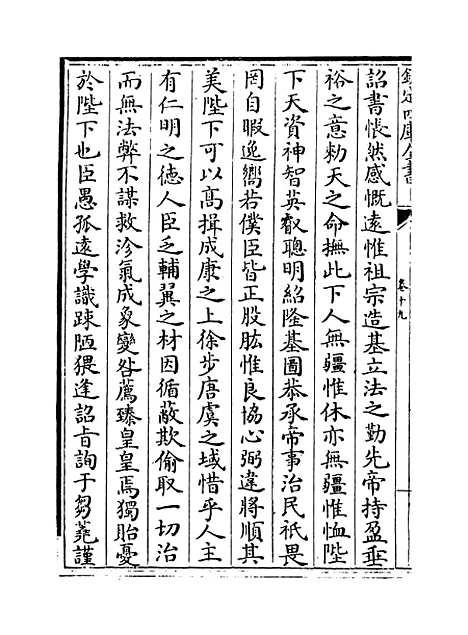 欽定四庫全書
卷十九
詔書悵然感慨遠惟祖宗造基立法之勤先帝持盈垂
裕之意勑天之命撫此下人無疆惟休亦無疆惟恤陛
下天資神智英叡聰明紹隆基圖恭承帝事治民祇畏
罔自暇逸嚮若僕臣皆正股肱惟良協心弼違將順其
美陛下可以髙揖成康之上徐步唐虞之域惜乎人主
有仁明之徳人臣乏輔翼之材因循蔽欺偷取一切治
而無法弊不謀救沴氣成象變咎薦臻皇皇焉獨貽憂
於陛下也臣愚孤逺學識踈陋猥逢詔旨詢于芻蕘謹